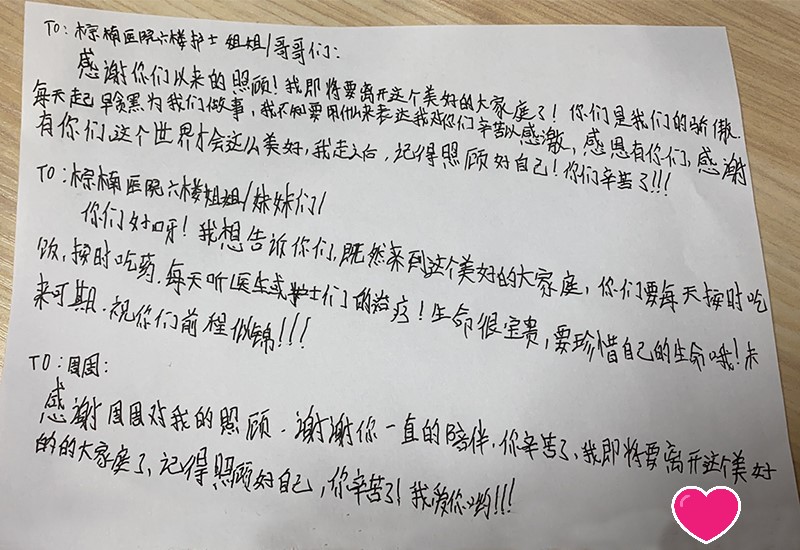 TO:棕榈医院六楼护士姐姐/哥哥们:
感谢你们以来的照顾!我即将要离开这个美好的大家庭了!你们是我们的骄傲.
每天起早贪黑为我们做事,我不知要用什么来表达我对你们辛苦以感激,感恩有你们,感谢
有你们,这个世界才会这么美好,我走之后,记得照顾好自己!你们辛苦了!!!
TO:棕榈医院六楼姐姐/妹妹们/
你们好呀!我想告诉你们,既然来到这个美好的大家庭,你们要每天按时吃
饭,按时吃药,每天听医生或护士们的治疗!生命很宝贵,要珍惜自己的生命哦!未
来可期.祝你们前程似锦!!!
TO:囡囡:
感谢囡囡对我的照顾.谢谢你一直的陪伴,你辛苦了,我即将要离开这个美好
的的大家庭了、记得照顾好自己,你辛苦了!我爱你哟!!!